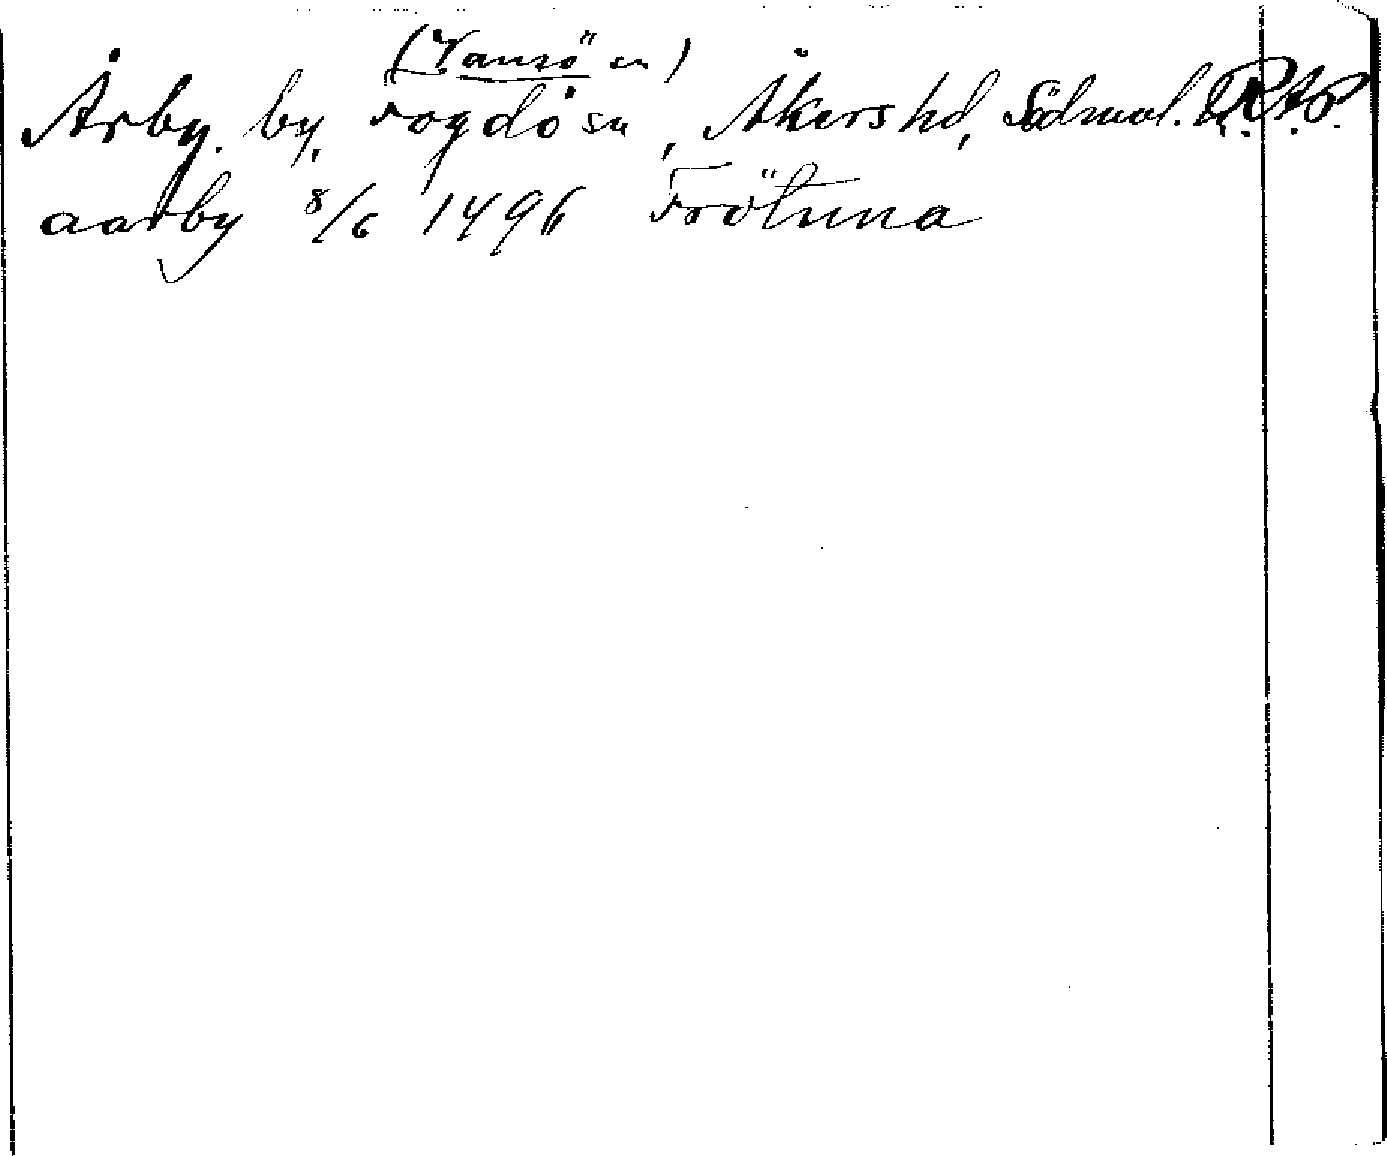 (Vansö sn)
Årby, by, Fogdö sn, Åkers hd, Södmal. R.A.P.
aarby 8/6 1496 Frötuna